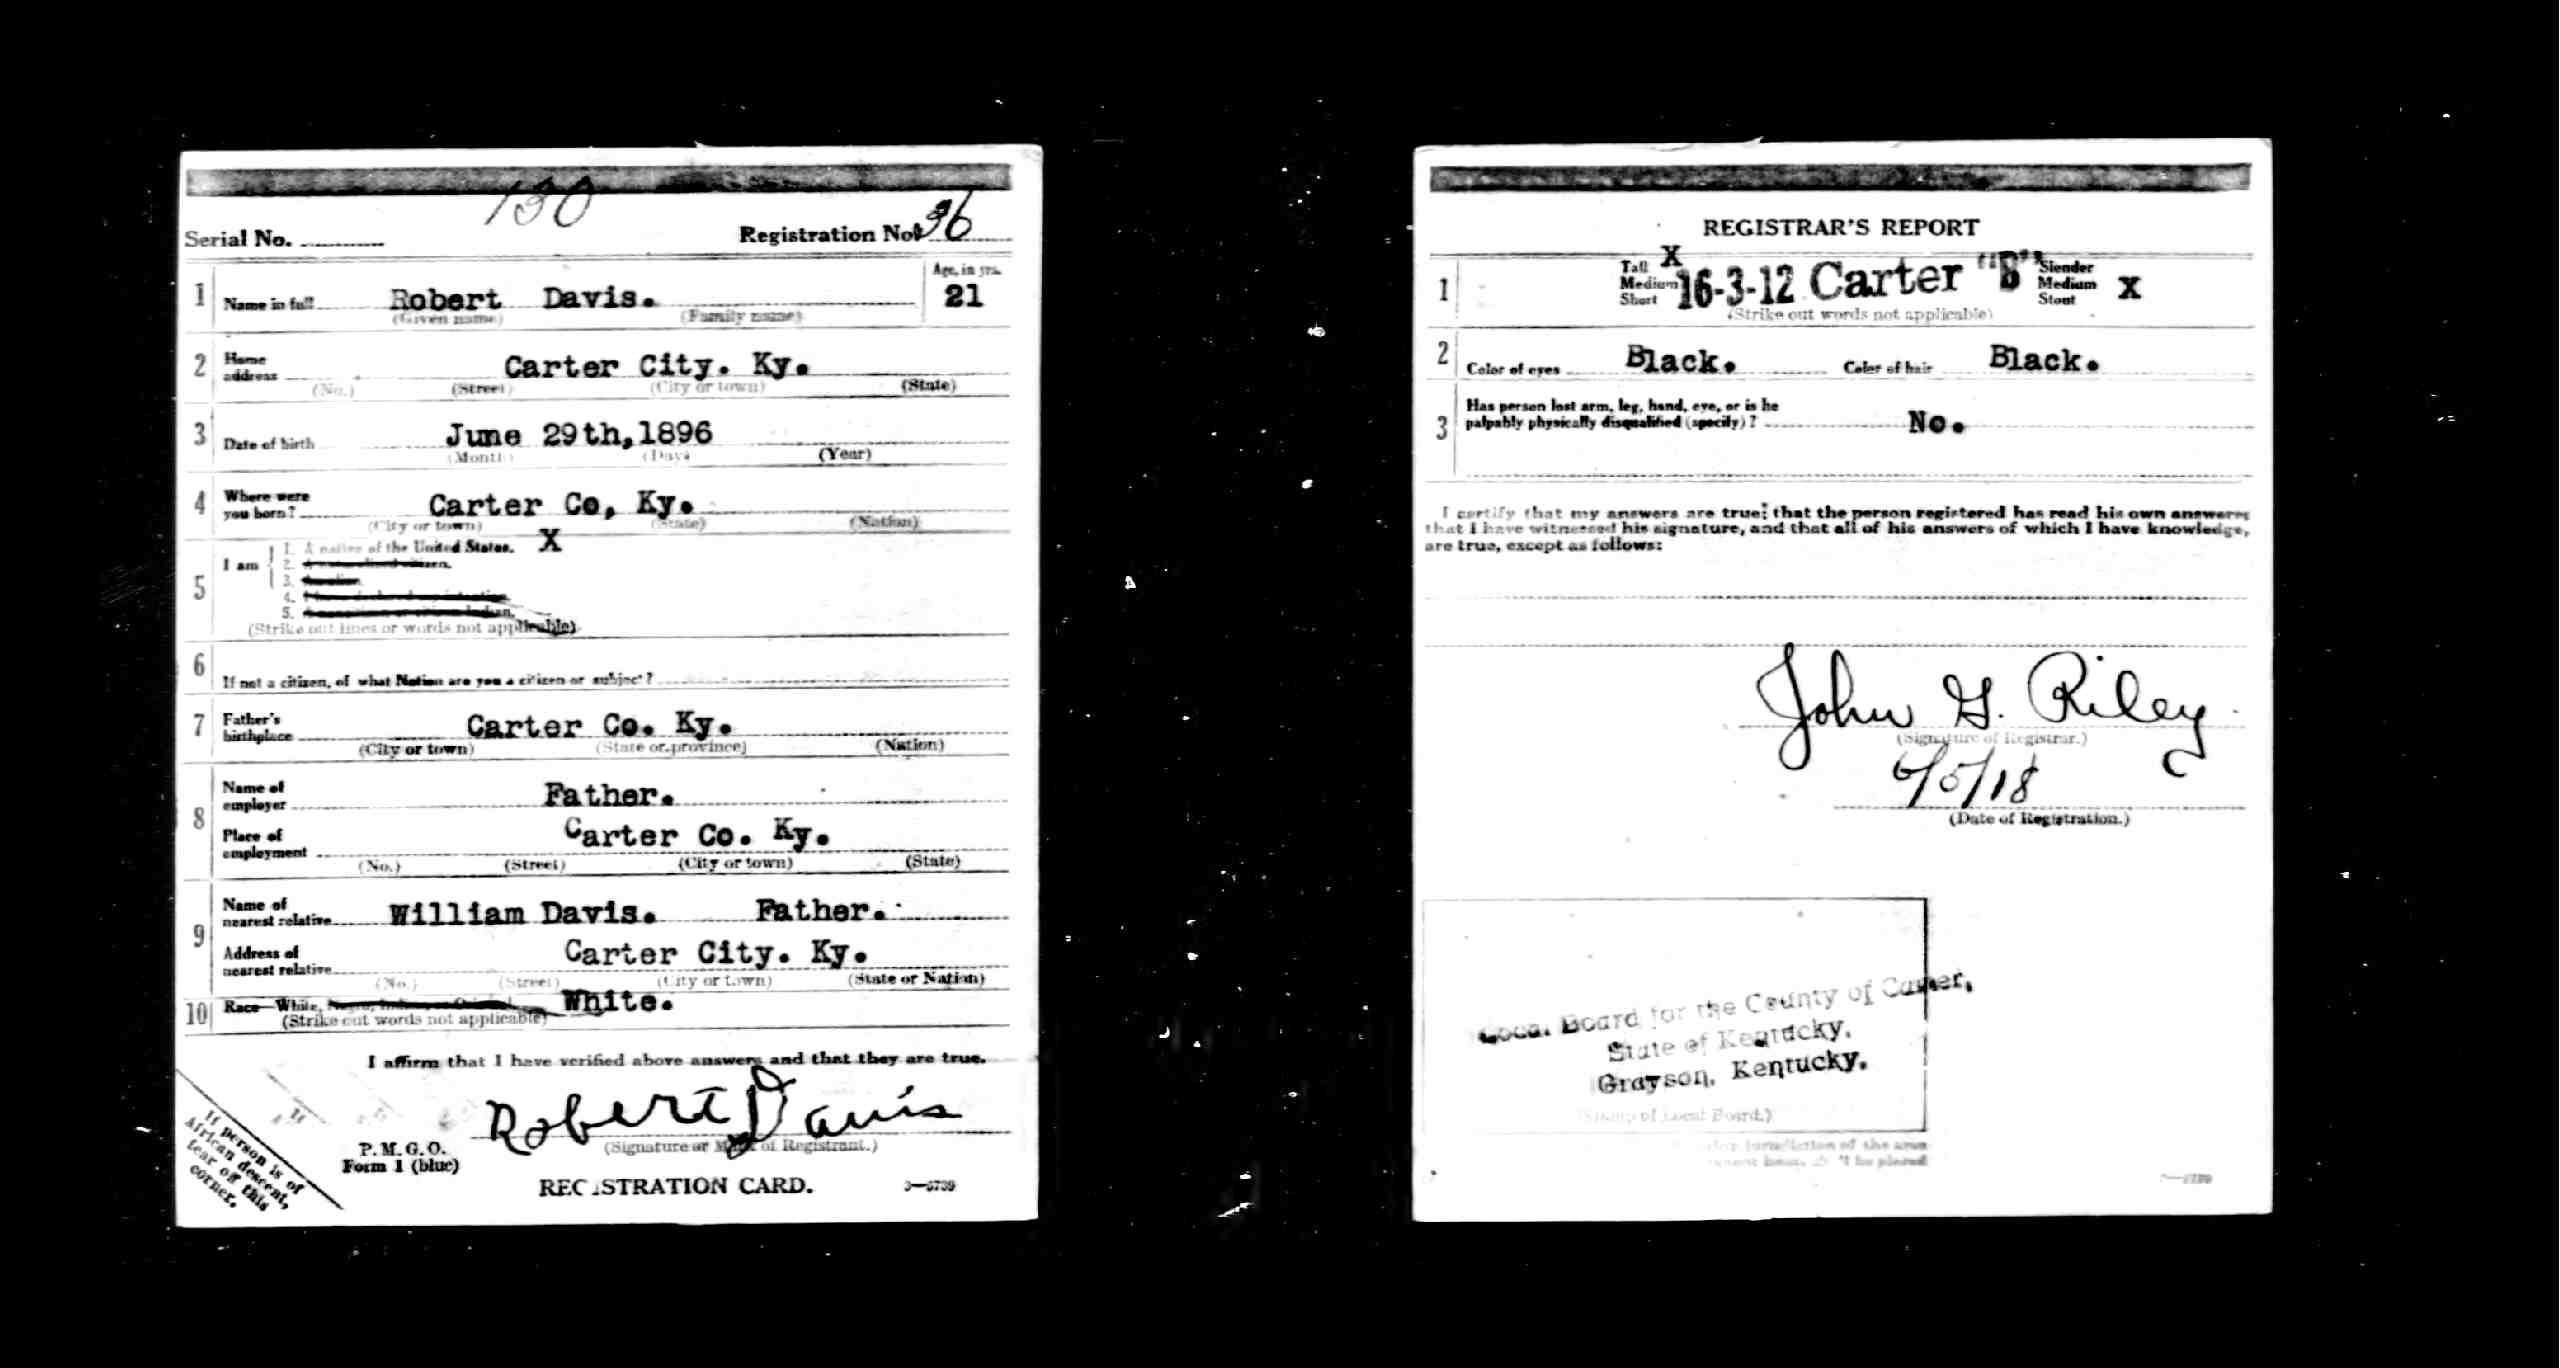 130
Serial No.
Registration No. 36
1 Name in full Robert Davis.
(Given name) (Family name)
Age, in yrs.
21
2 Home address Carter City. Ky.
(No.) (Street) (City or town) (State)
3 Date of birth June 29th,1896
(Month) (Day) (Year)
4 Where were you born? Carter Co, Ky.
(City or town) (State) (Nation)
X
5 I am
1. A native of the United States.
2. A naturalized citizen.
3. An alien.
4.
5.
(Strike out lines or words not applicable)
6 If not a citizen, of what Nation are you a citizen or subject?
7 Father's birthplace Carter Co. Ky.
(City or town) (State or province) (Nation)
8 Name of employer Father.
Place of employment Carter Co. Ky.
(No.) (Street) (City or town) (State)
9 Name of nearest relative William Davis. Father.
Address of nearest relative Carter City. Ky.
(No.) (Street) (City or town) (State or Nation)
10 Race—White, White.
(Strike out words not applicable)
I affirm that I have verified above answers and that they are true.
Robert Davis
(Signature or Mark of Registrant.)
P. M. G. O.
Form 1 (blue)
REGISTRATION CARD.
If person is of
African descent,
tear off this
corner.
REGISTRAR'S REPORT
1 Tall X Slender
Medium 16-3-12 Carter "B" Medium X
Short Stout
(Strike out words not applicable)
2 Color of eyes Black. Color of hair Black.
3 Has person lost arm, leg, hand, eye, or is he
palpably physically disqualified (specify)? No.
I certify that my answers are true; that the person registered has read his own answers
that I have witnessed his signature, and that all of his answers of which I have knowledge,
are true, except as follows:
John G. Riley
(Signature of Registrar.)
6/5/18
(Date of Registration.)
Local Board for the County of Carter,
State of Kentucky,
Grayson, Kentucky.
(Stamp of Local Board.)
jurisdiction of the area